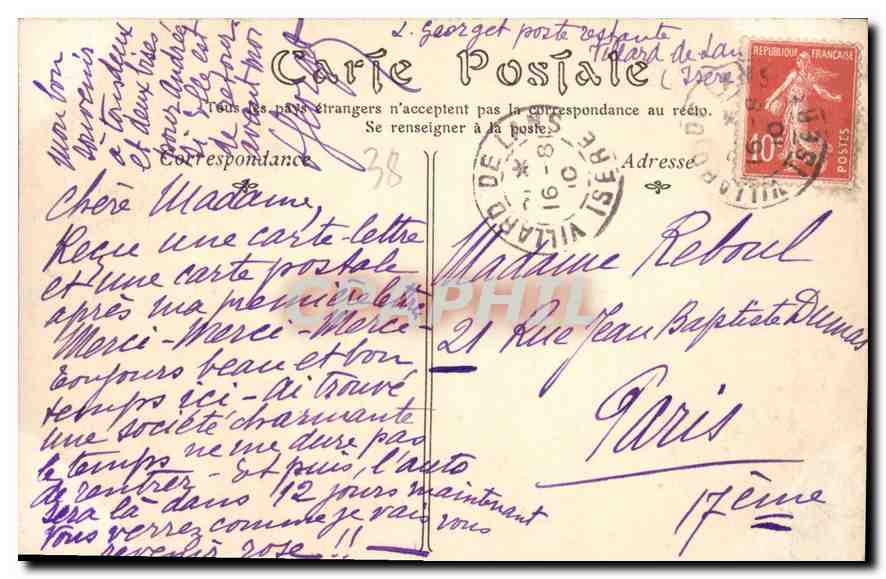 L. Georget poste restante
Villard de Lans
(Isère)
Carte Postale
Tous les pays étrangers n'acceptent pas la correspondance au recto.
Se renseigner à la poste.
Correspondance
Adresse
38
REPUBLIQUE FRANÇAISE
10
POSTES
VILLARD DE LANS
16-8
10
ISERE
mon bon
souvenir
à tous deux
et deux bises
pour Andrée
si elle est
de retour
avant moi
Georget
Chère Madame,
Reçu une carte-lettre
et une carte postale
après ma première lettre
Merci-Merci-Merci-
Toujours beau et bon
temps ici - ai trouvé
une société charmante
le temps ne me dure pas
de rentrer - Et puis, l'auto
sera là dans 12 jours maintenant
Vous verrez comme je vais vous
revenir rose !!
Madame Reboul
21 Rue Jean Baptiste Dumas
Paris
17ème
CPAPHIL